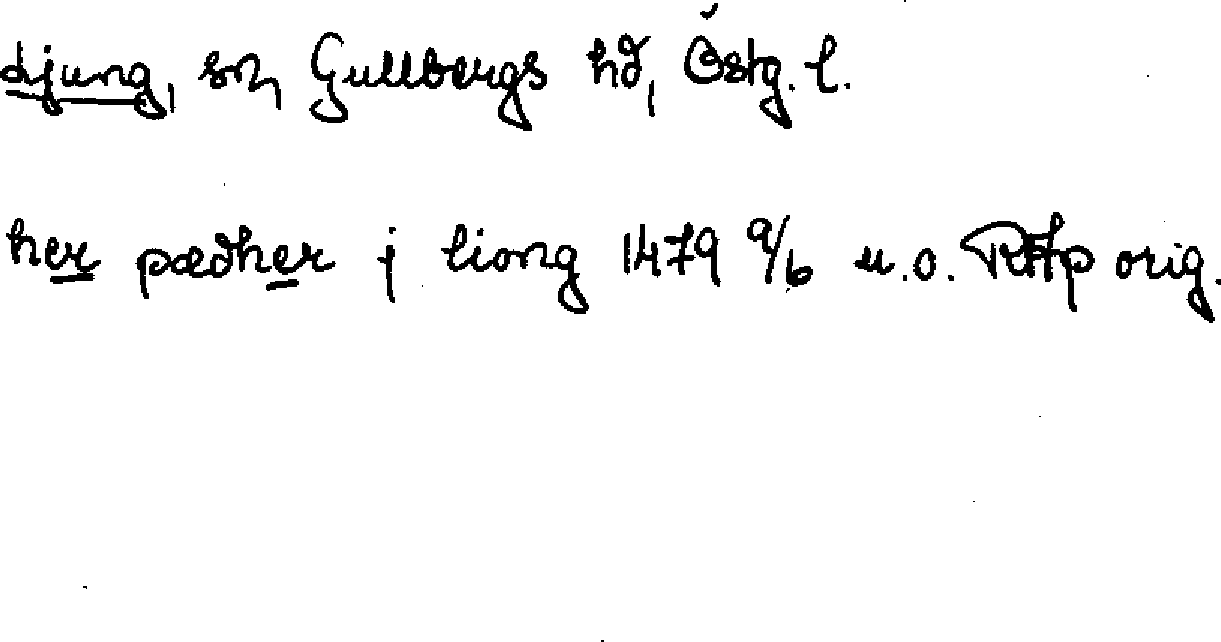 Ljung, sn, Gullbergs hd, Östg. l.
her pædher j liong 1479 9/6 u.o. RAp orig.